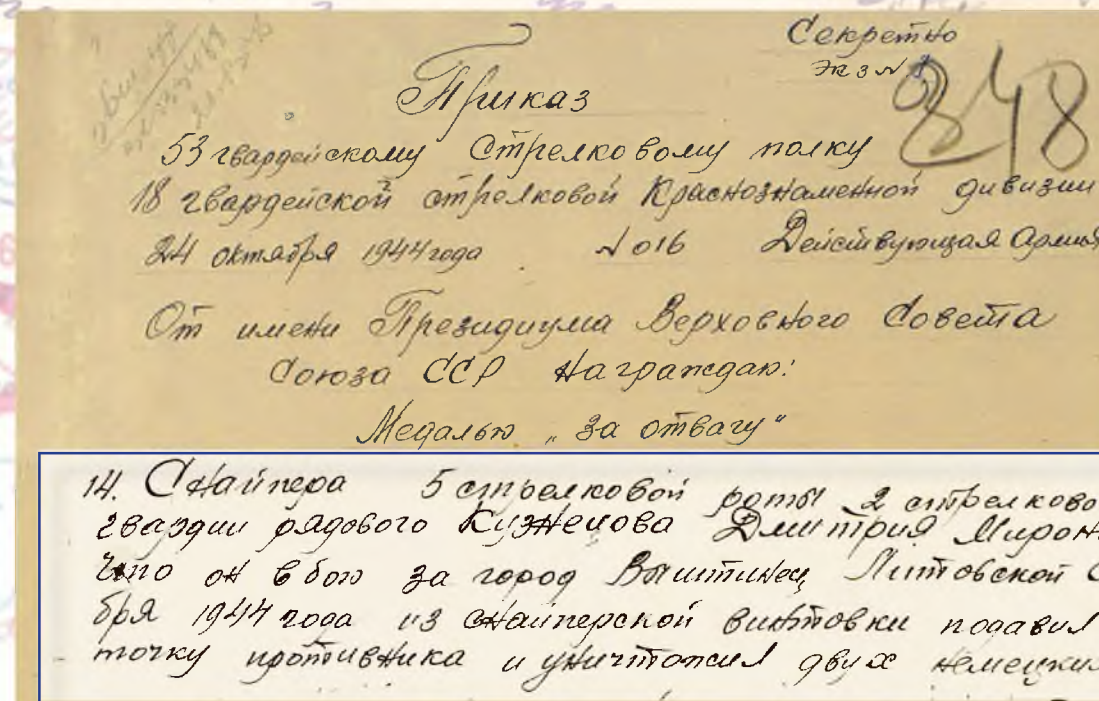 Секретно
Экз №1
248
Приказ
53 гвардейскому Стрелковому полку
18 гвардейской стрелковой Краснознаменной дивизии
24 октября 1944 года №016 Действующая Армия
От имени Президиума Верховного Совета
Союза ССР Награждаю:
Медалью „За отвагу"
14. Снайпера 5 стрелковой роты 2 стрелково
гвардии рядового Кузнецова Дмитрия Мирон
что он в бою за город Виштинец Литовской С
бря 1944 года из снайперской винтовки подавил
точку противника и уничтожил двух немецки